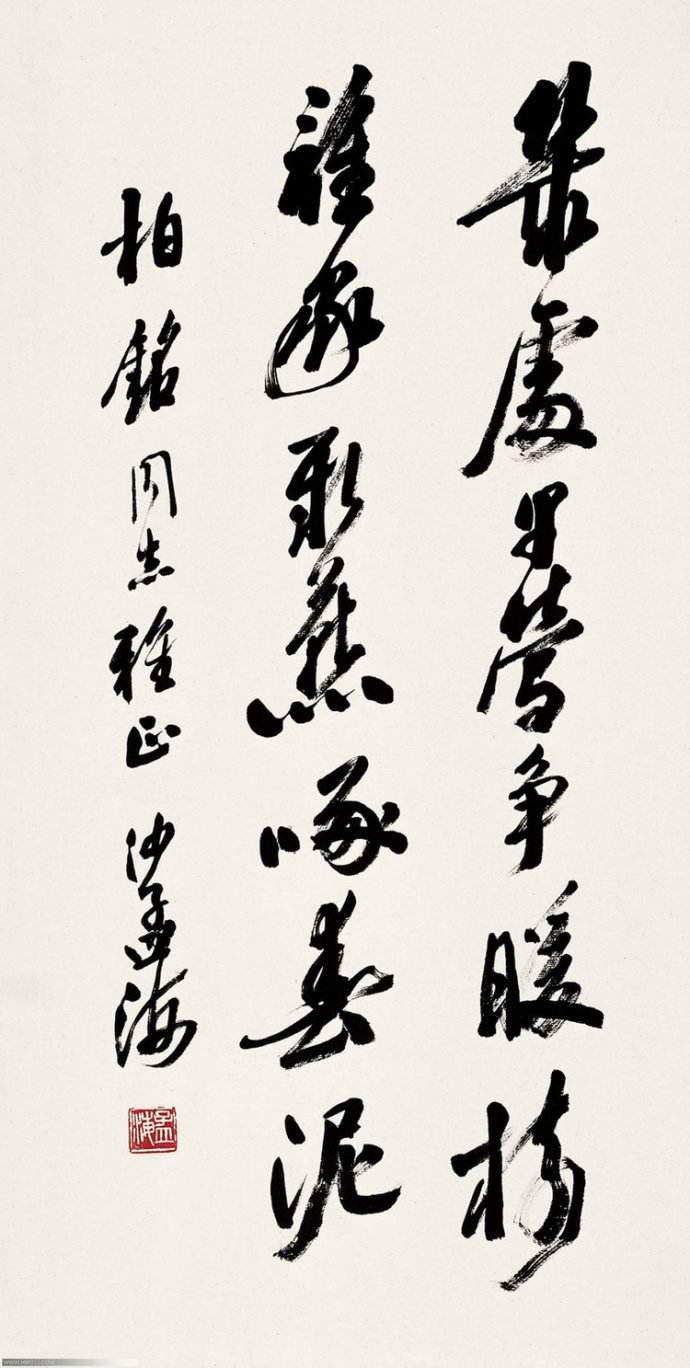 幾處早鶯争暖樹
誰家新燕啄春泥
柏銘同志雅正 沙孟海
孟海